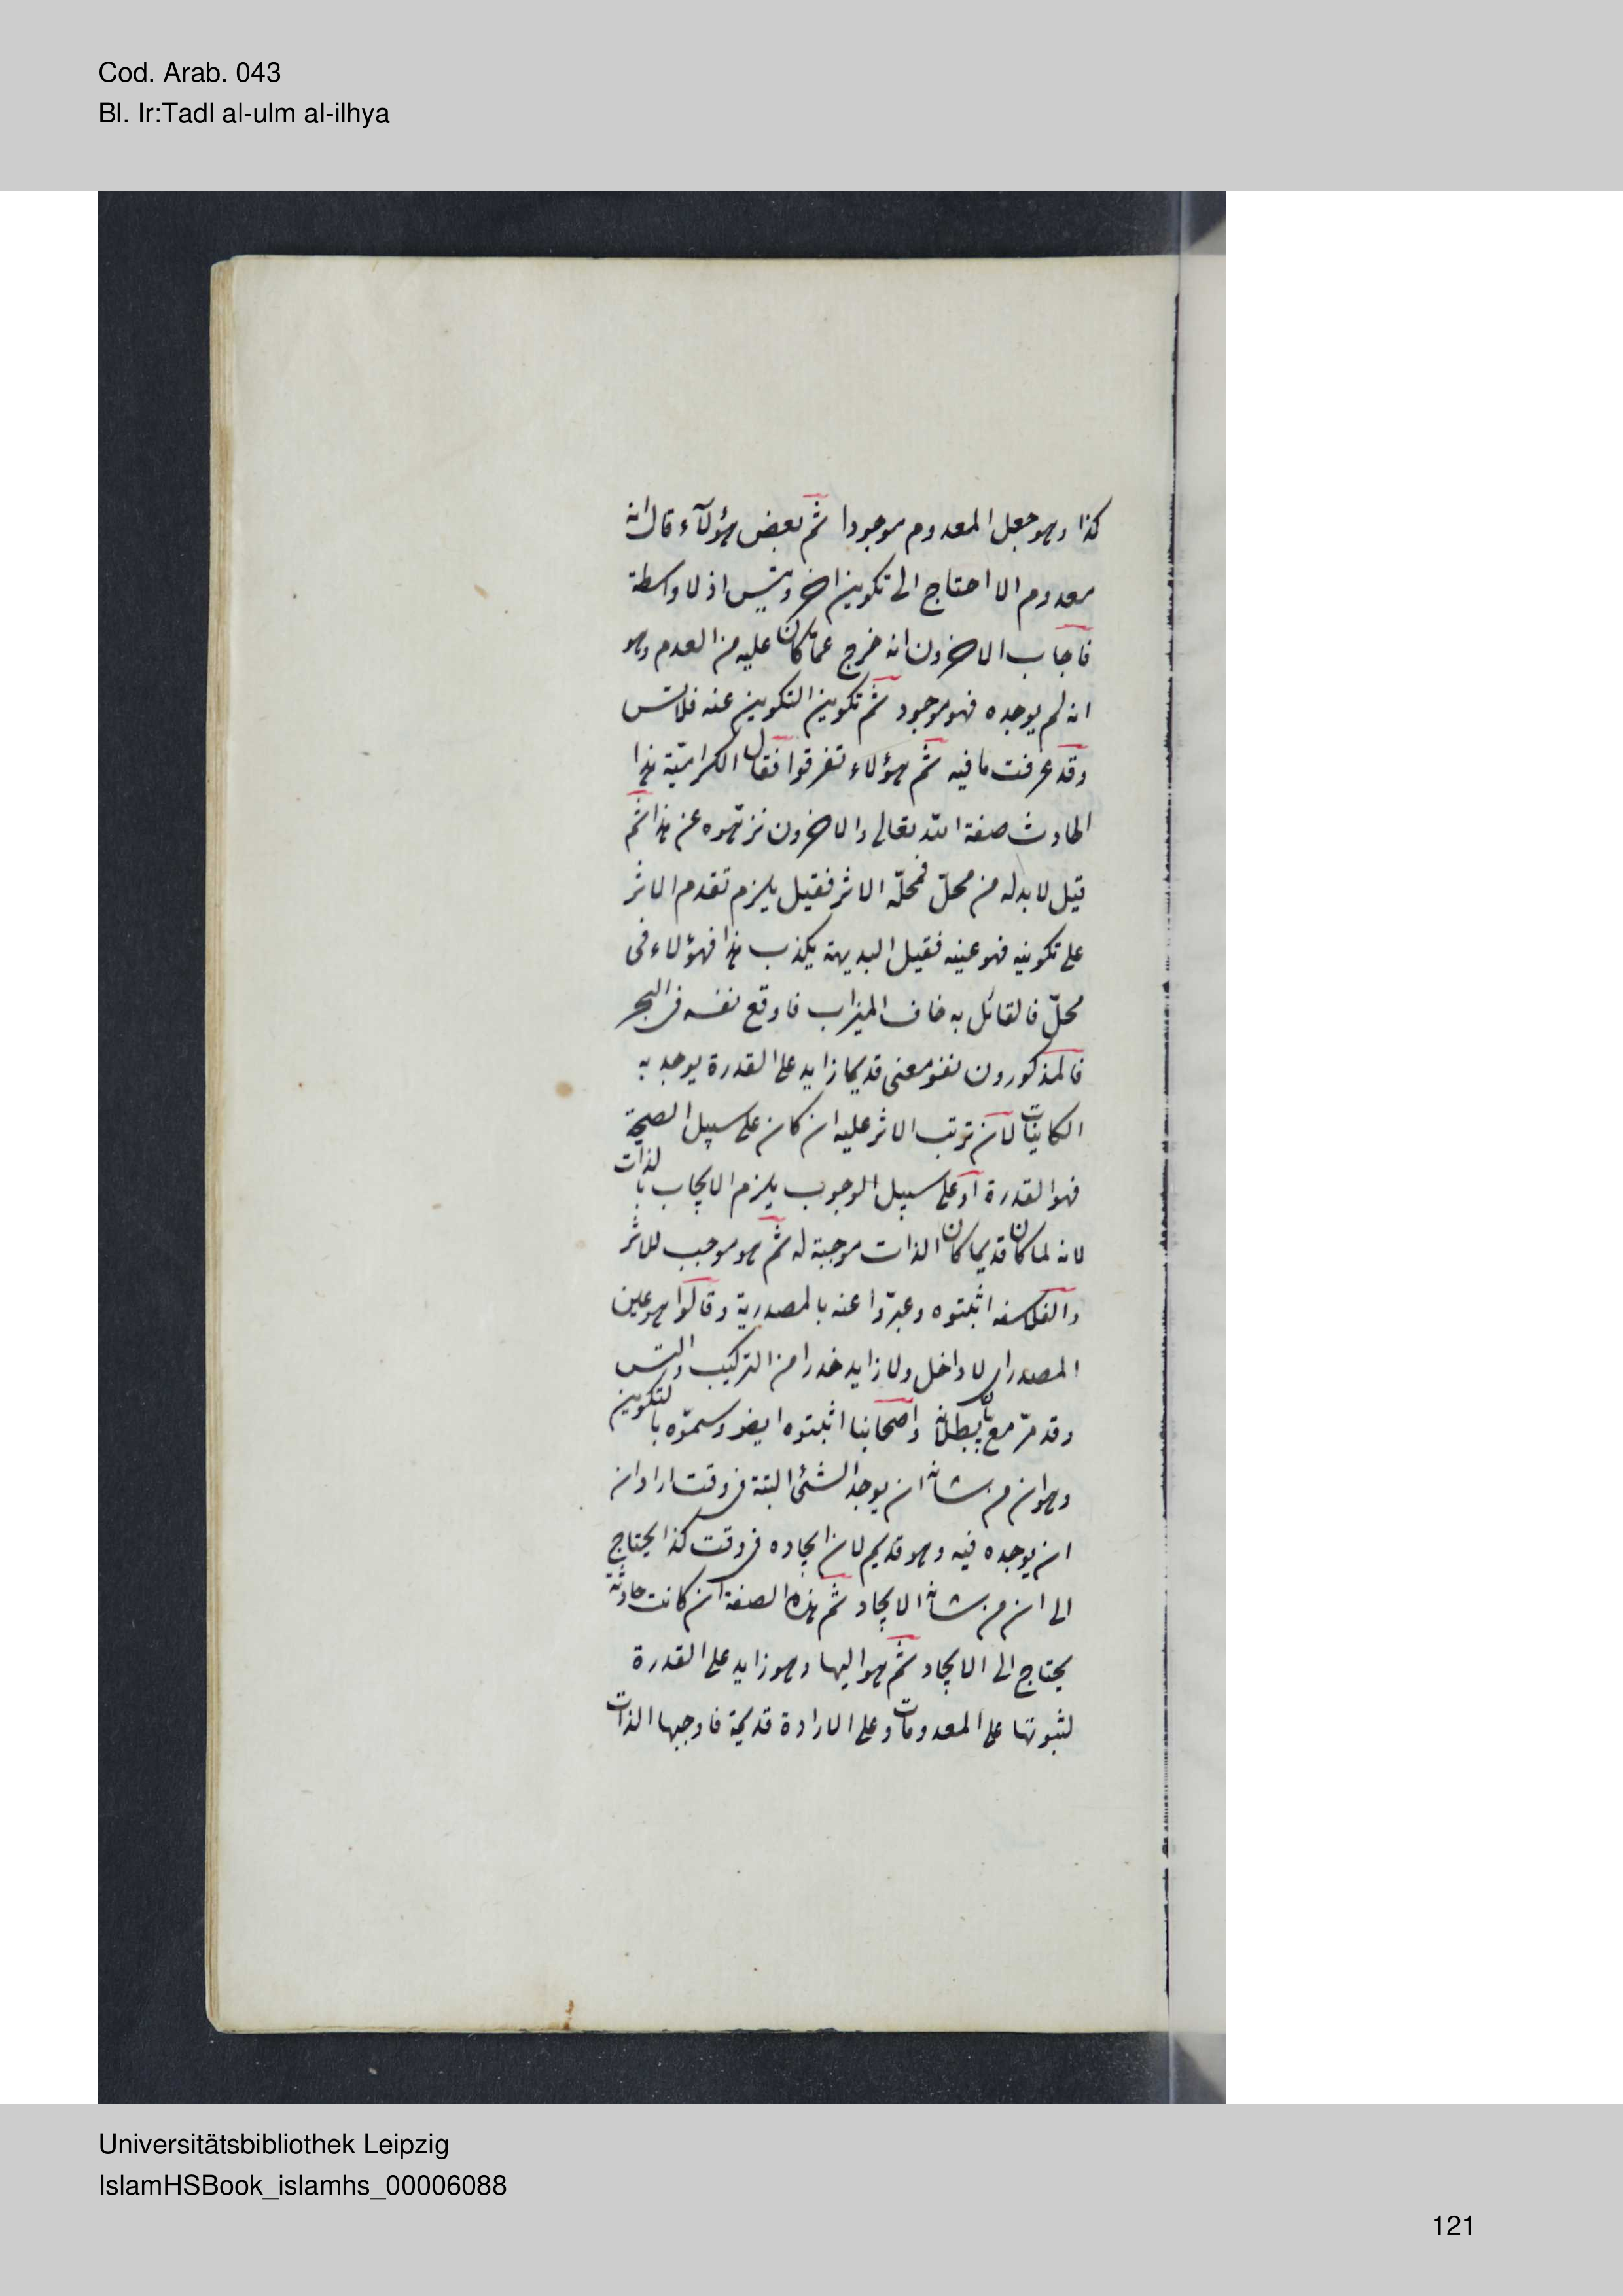 Cod. Arab. 043
Bl. Ir:Tadl al-ulm al-ilhya
كذا وهو جعل المعدوم موجودا ثم بعض هؤلآء قال انه
معدوم الا احتاج الى تكوين اخر ويتس اذ لا واسطة
فاجاب الاخرون انه خرج عما كان عليه من العدم وهو
انه لم يوجده فهو موجود ثم تكوين التكوين عنه فلا تس
وقد عرفت ما فيه ثم هؤلاء تفرقوا فقال الكراميّة هذا
الحادث صفة الله تعالى والاخرون نزهوه عن هذا ثم
قيل لا بد له من محلّ فمحلّه الاثر فقيل يلزم تقدم الاثر
على تكوينه فهو عينه فقيل البديهة يكذب هذا فهؤلاء فى
محلّ فالقائل به خاف الميزاب فاوقع نفسه فى البحر
فالمذكورون نفو معنى قديما زايد على القدرة يوجد به
الكاينات لان ترتب الاثر عليه ان كان على سبيل الصحة
فهو القدرة او على سبيل الوجوب يلزم الايجاب بالذات
لانه لما كان قديما كان الذات موجبة له ثم هو موجب للاثر
والفلاسفه اثبتوه وعبرّوا عنه بالمصدرية وقالوا هو عين
المصدر لا داخل ولا زايد حذرا من التركيب والتس
وقد مرّ مع بيان بطلانه واصحابنا اثبتوه ايض وسمّوه بالتكوين
وهو ان من شانه ان يوجد الشئ البتة فى وقت اراد ان
ان يوجده فيه وهو قديم لان ايجاده فى وقت كذا يحتاج
الى ان من شانه الايجاد ثم هذه الصفة ان كانت حادثة
يحتاج الى الايجاد ثم هو اليها وهو زايد على القدرة
لثبوتها على المعدومات وعلى الارادة قديمة فاوجبها الذات
Universitätsbibliothek Leipzig
IslamHSBook_islamhs_00006088
121